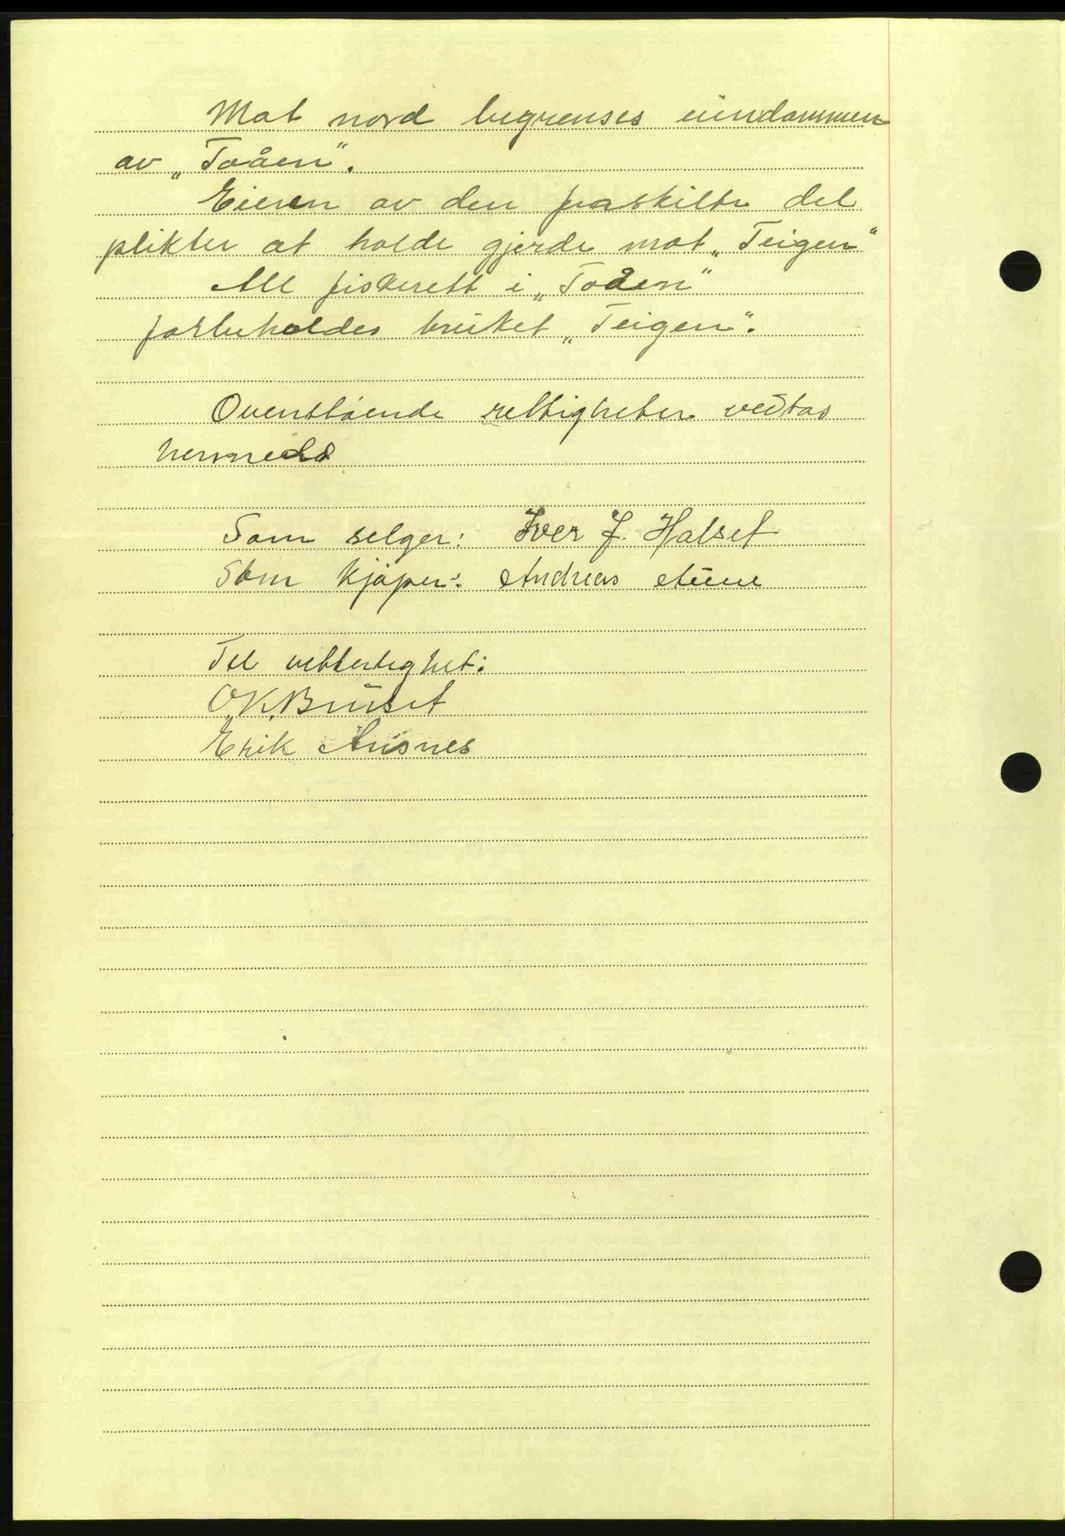 Mot nord begrenses eiendommen
av „Toåen“.
Eieren av den fraskilte del
plikter at holde gjerde mot „Teigen“
All fiskerett i „Toåen“
forbeholdes bruket „Teigen“.
Ovenstående rettigheter vedtas
hermed
Som selger: Iver J. Halset
Som kjøper: Andreas Aune
Til vitterlighet:
O.K. Bruset
Erik Aasnes